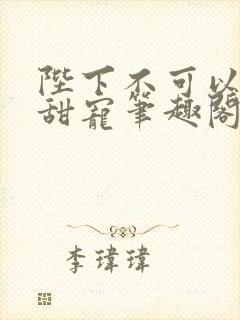 陛下不可以
甜寵筆趣閣
李瑋瑋